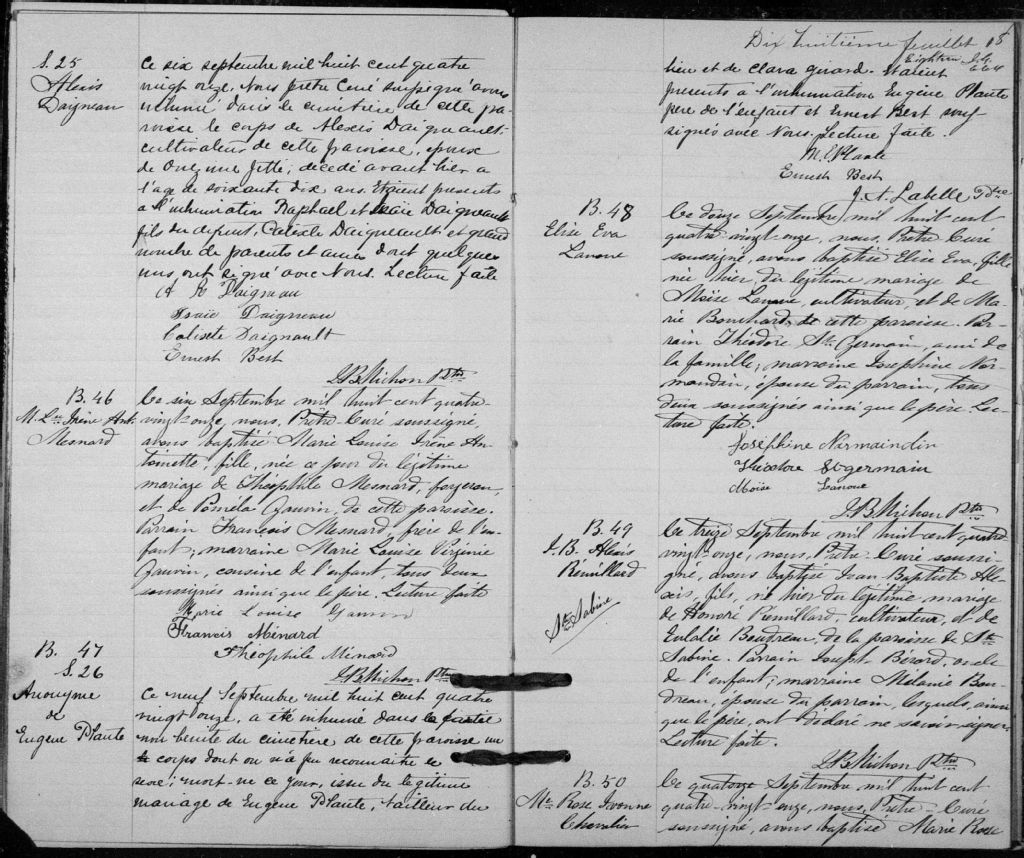 S. 25
Alexis
Daigneau
Ce six septembre mil huit cent quatre
vingt onze, Nous prêtre Curé soussigné avons
inhumé dans le cimetière de cette pa-
roisse le corps de Alexis Daigneault
cultivateur de cette paroisse, époux
de Onezime Jetté, décédé avant hier a
l'age de soixante dix ans. Etaient presents
a l'inhumation Raphael et Isaïe Daigneault
fils du defunt, Calixte Daigneault et grand
nombre de parents et amis dont quelques
uns ont signé avec Nous. Lecture faite
A R Daigneau
Isaie Daigneau
Calixete Daignault
Ernest Best
J.B. Michon Ptre
B. 46
M. Lse Irène Ant.
Mesnard
Ce six Septembre mil huit-cent quatre-
vingt-onze, nous, Prêtre-Curé soussigné,
avons baptisé Marie Louise Irène An-
toinette, fille, née ce jour du légitime
mariage de Théophile Mesnard, forgeron,
et de Paméla Gauvin, de cette paroisse.
Parrain François Mesnard, frère de l'en-
fant; marraine Marie Louise Virginie
Gauvin, cousine de l'enfant, tous deux
soussignés ainsi que le père. Lecture faite
Marie Louise Gauvin
Francis Ménard
Théophile Ménard
J.B. Michon Ptre
B. 47
S. 26
Anonyme
de
Eugène Plante
Ce neuf Septembre mil huit cent quatre
vingt onze, a été inhumé dans la partie
non benite du cimetière de cette paroisse un
corps dont on n'a pu reconnaitre le
sexe; mort-né ce jour, issu du légitime
mariage de Eugène Plante, tailleur du
Dix huitième feuillet 18
Eighteen
lieu et de Clara Girard. Etaient
presents a l'inhumation Eugène Plante
père de l'enfant et Ernest Best sous-
signés avec Nous. Lecture faite.
M. E Plante
Ernest Best
J. A. Labelle Ptre
B. 48
Elise Eva
Lanoue
Ce douze Septembre, mil huit cent
quatre-vingt-onze, nous, Prêtre Curé
soussigné, avons baptisé Elise Eva, fille
née hier, du légitime mariage de
Moïse Lanoue, cultivateur, et de Ma-
rie Bouchard, de cette paroisse. Par-
rain Théodore St. Germain, ami de
la famille; marraine Josephine Nor-
mandin, épouse du parrain, tous
deux soussignés ainsi que le père Lec-
ture faite.
Joséphine Normaindin
Théodore St germain
Moïse Lanoue
J.B. Michon Ptre
B. 49
J. B. Alexis
Rémillard
Ste Sabine
Ce treize Septembre mil huit cent quatre
vingt-onze, nous, Prêtre-Curé soussi-
gné, avons baptisé Jean Baptiste Ale-
xis, fils, né hier du légitime mariage
de Honoré Rémillard, cultivateur, et de
Eulalie Boudreau, de la paroisse de Ste
Sabine. Parrain Joseph Bérard, oncle
de l'enfant; marraine Mélanie Bou-
dreau, épouse du parrain, lesquels, ainsi
que le père, ont déclaré ne savoir signer.
Lecture faite.
J.B. Michon Ptre
B. 50
Me Rose Yvonne
Chevalier
Ce quatorze Septembre, mil huit cent
quatre-vingt-onze, nous, Prêtre-Curé
soussigné, avons baptisé Marie Rose